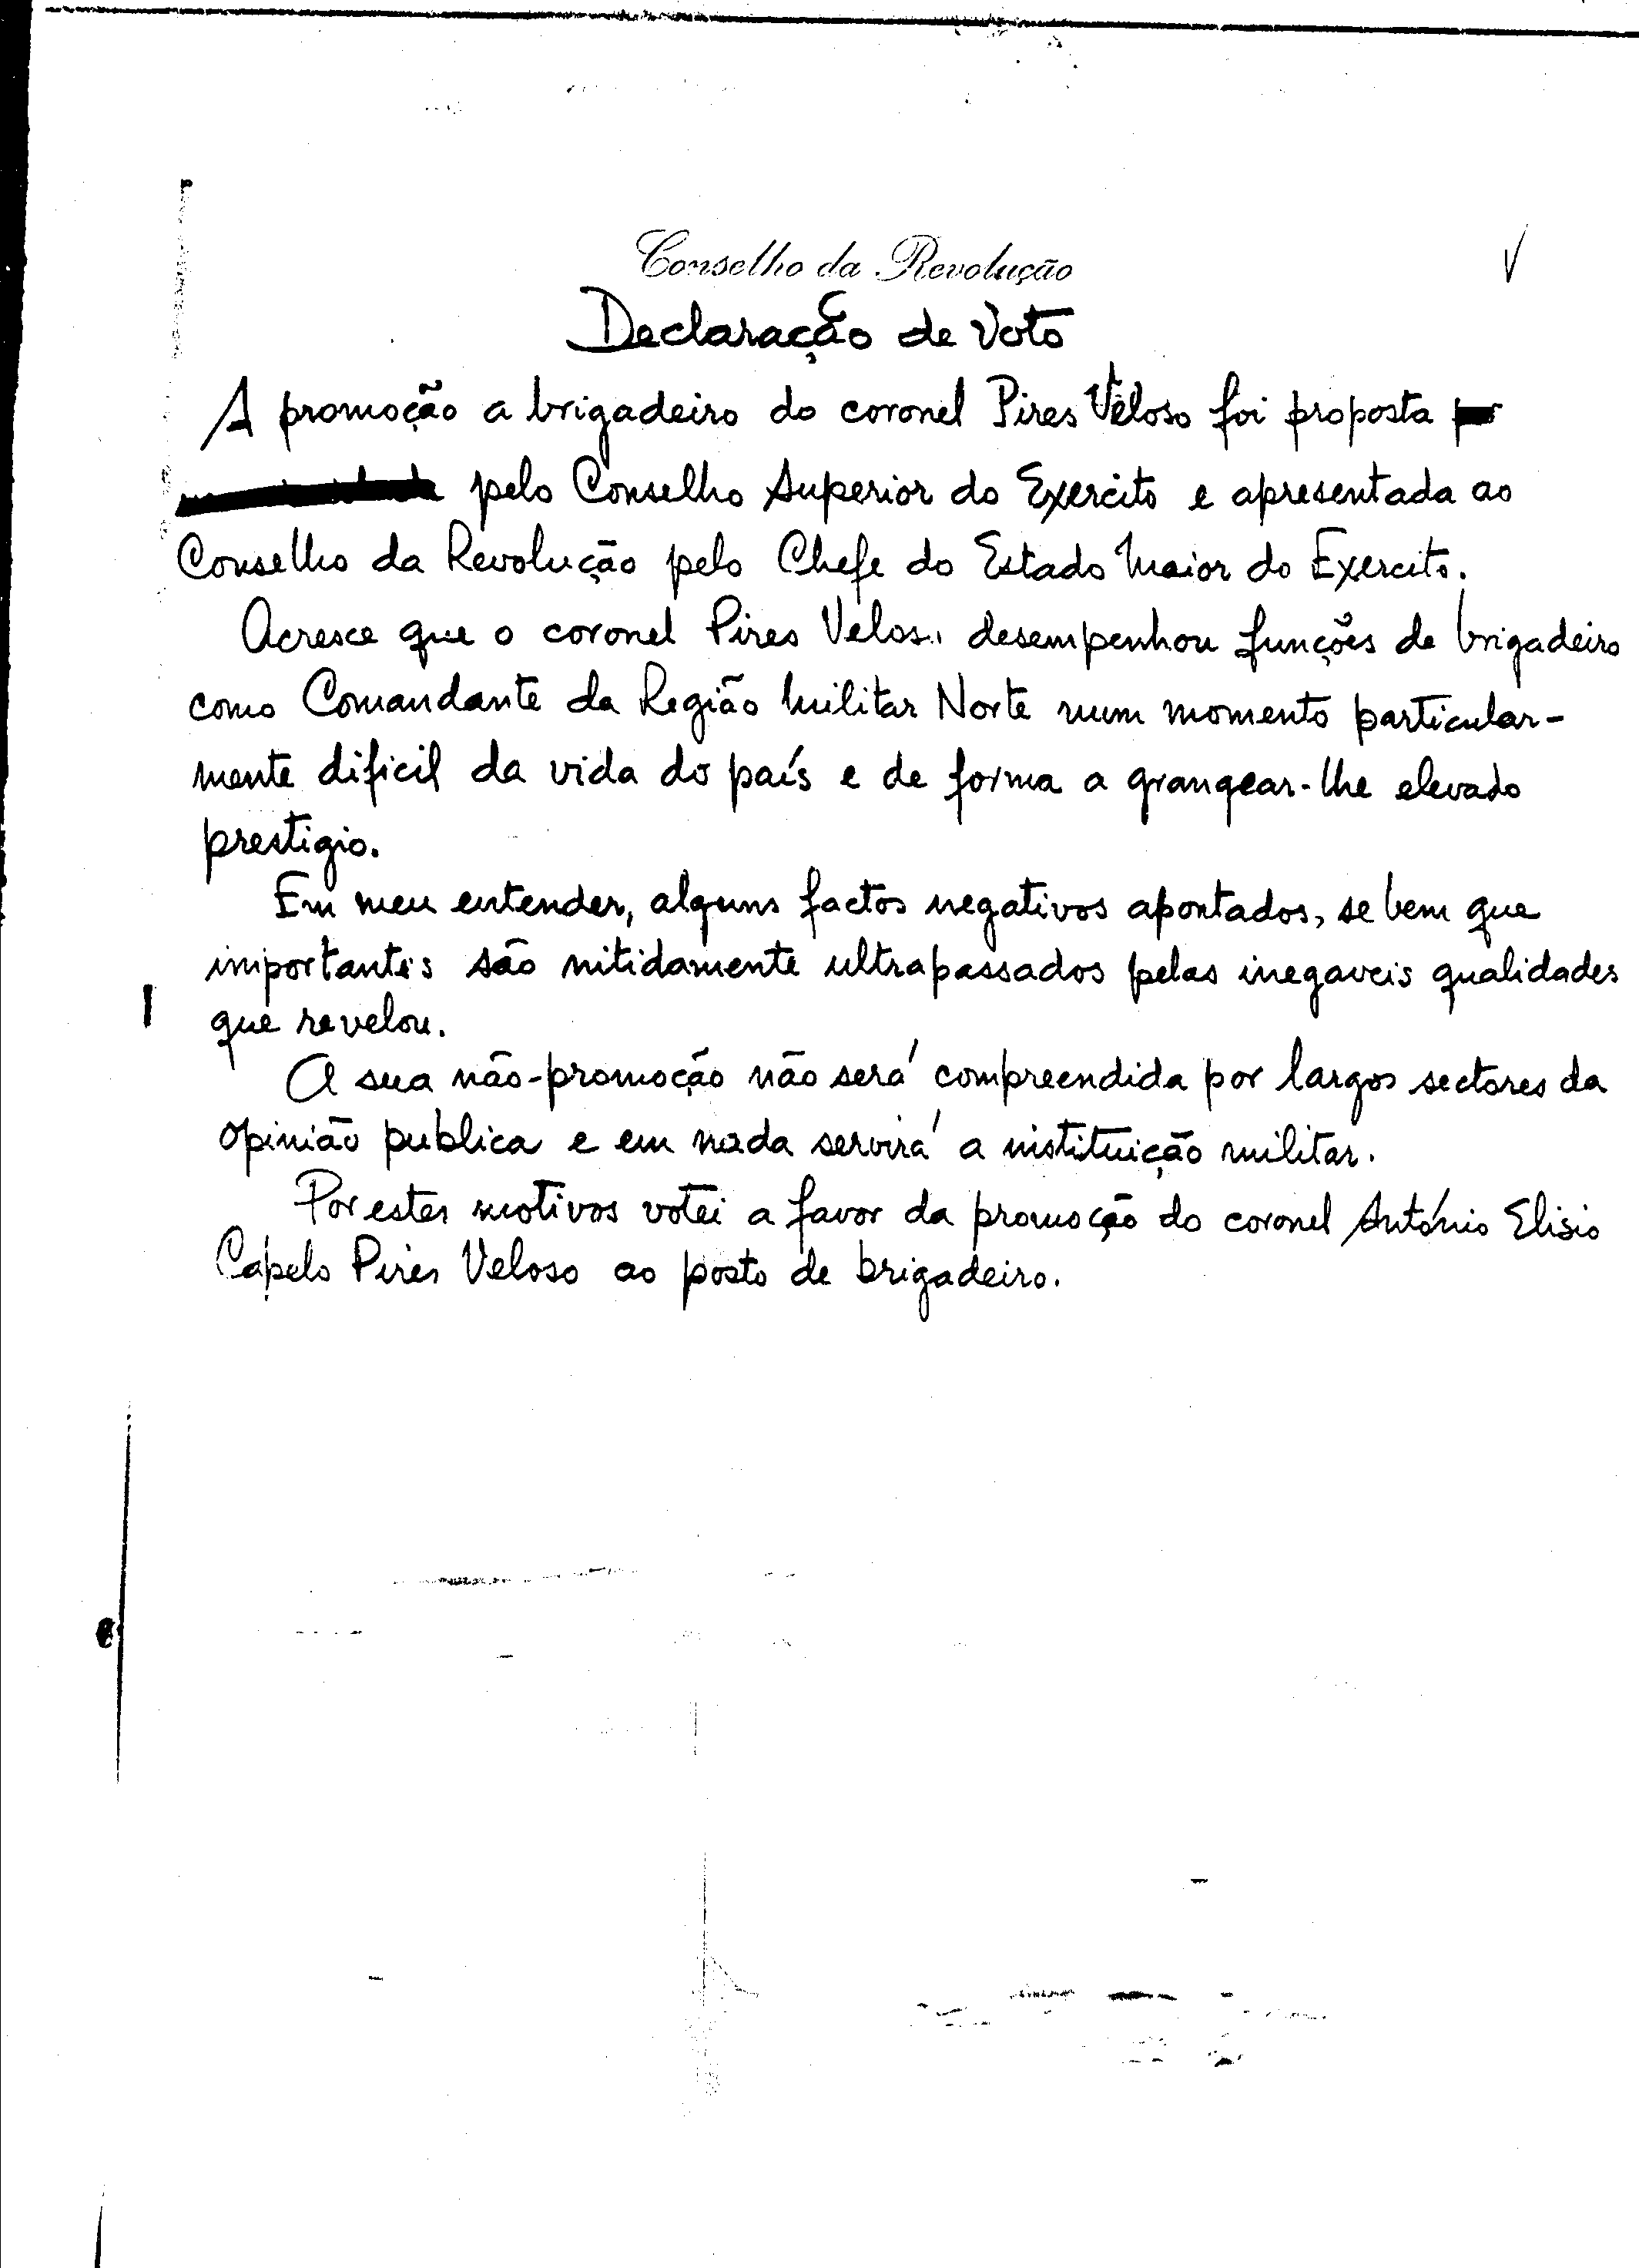 Conselho da Revolução
Declaração de Voto
A promoção a brigadeiro do coronel Pires Veloso foi proposta
pelo Conselho Superior do Exercito e apresentada ao
Conselho da Revolução pelo Chefe do Estado Maior do Exercito.
Acresce que o coronel Pires Veloso desempenhou funções de brigadeiro
como Comandante da Região Militar Norte num momento particular-
mente dificil da vida do país e de forma a grangear-lhe elevado
prestigio.
Em meu entender, alguns factos negativos apontados, se bem que
importantes são nitidamente ultrapassados pelas inegaveis qualidades
que revelou.
A sua não-promoção não será compreendida por largos sectores da
opinião publica e em nada servirá a instituição militar.
Por estes motivos votei a favor da promoção do coronel António Elisio
Capelo Pires Veloso ao posto de brigadeiro.